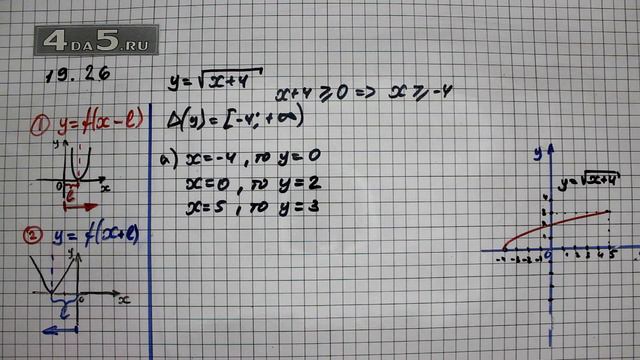 4DA5.RU
19.26
① y=f(x-l)
y
0
l
x
② y=f(x+l)
y
0
l
x
y=√x+4
x+4⩾0 => x⩾-4
Д(y)=[-4;+∞)
а) x=-4, то y=0
x=0, то y=2
x=5, то y=3
y
y=√x+4
-4 -3 -2 -1 0 1 2 3 4 5